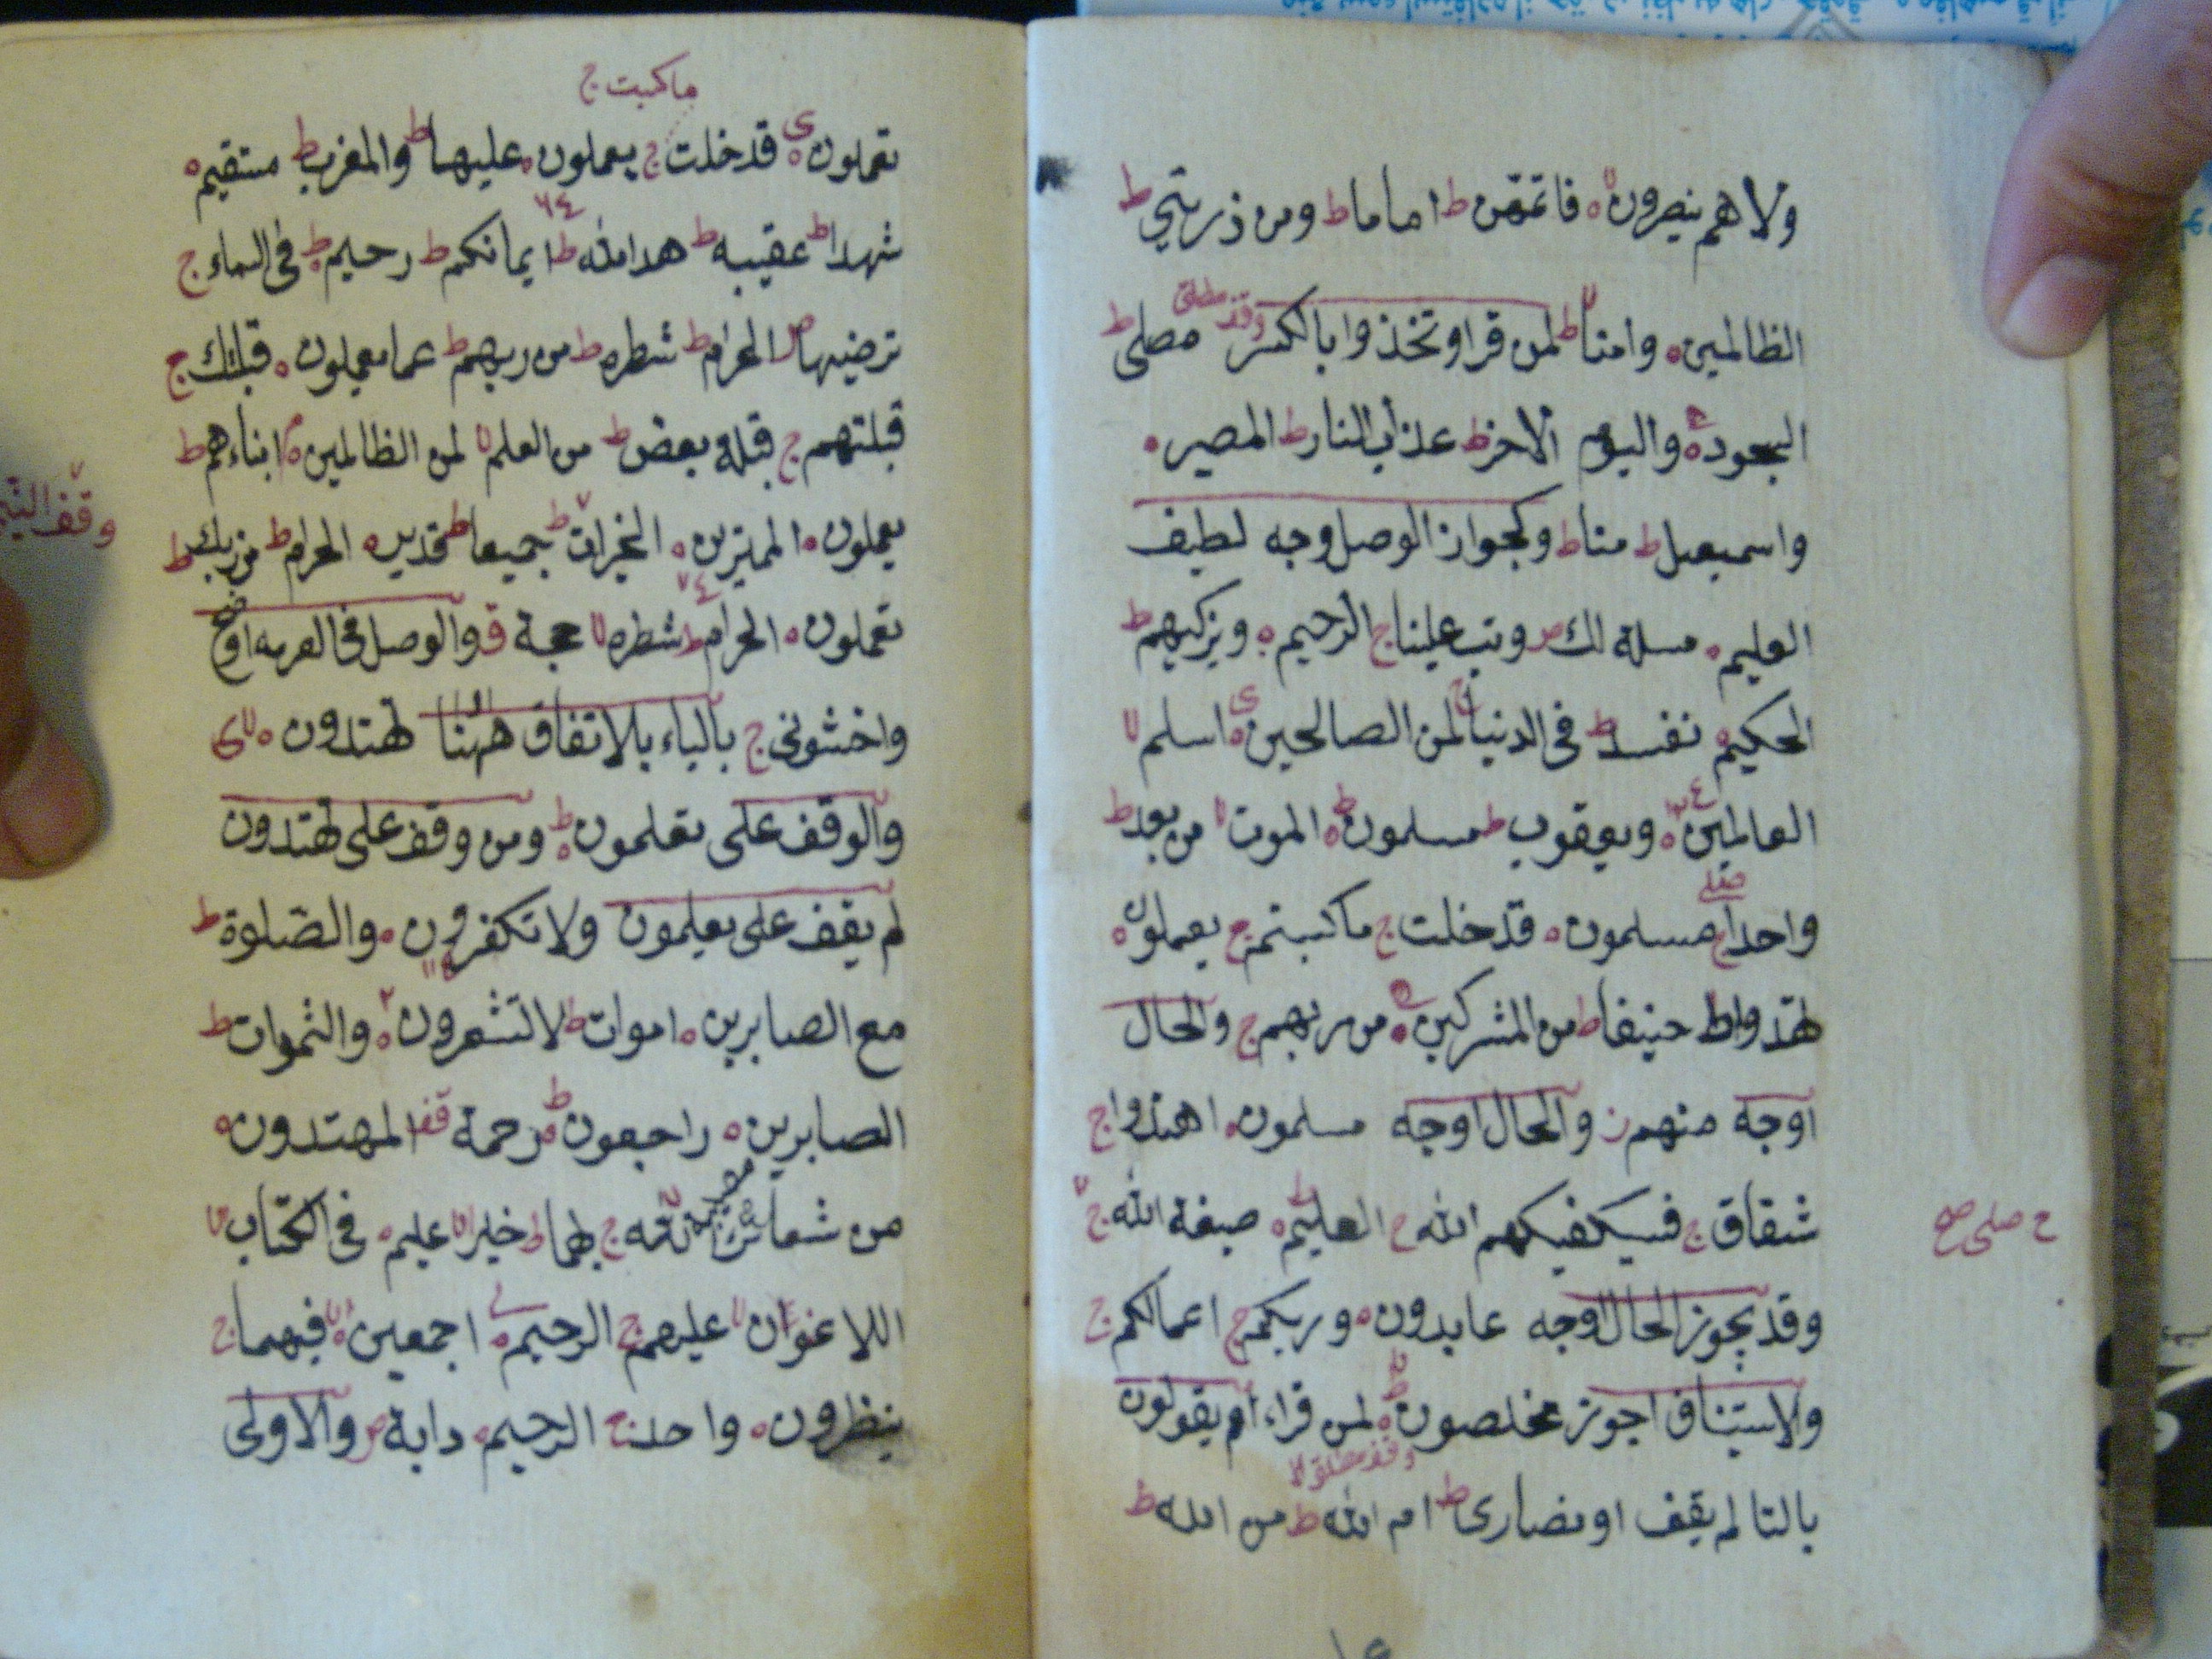 ولا هم ينصرون ه فاتمّهن ط اماما ط ومن ذريتي ط
الظالمين ه وامنا ط لمن قرا وتخذوا بالكسر وقف مطلق مصلى ط
السجود ه واليوم الاخر ط عذاب النار ط المصير ه
واسمعيل ط منا ط ولجواز الوصل وجه لطيف
العليم ه مسلمة لك ص وتب علينا ج الرحيم ه ويزكيهم ط
الحكيم ه نفسه ط في الدنيا ج لمن الصالحين ه اسلم لا
العالمين ه ويعقوب ط مسلمون ه ط الموت لا من بعد ط
واحدا ج مسلمون ه قد خلت ج ما كسبتم ج يعملون ه
تهتدوا ط حنيفا ط من المشركين ه من ربهم ج والحال
اوجه منهم ز والحال اوجه مسلمون ه اهتدوا ج
شقاق ج فسيكفيكهم الله ج العليم ه صبغة الله ج
ح صلى صح
وقد يجوز الحال اوجه عابدون ه وربكم ج اعمالكم ج
والاستيناف اجوز مخلصون ه ط لمن قراء ام يقولون
بالتا لم يقف او نصارى ط ام الله ط من الله ط
وقف مطلق لا
ما كسبت ج
تعملون ه قد خلت ج يعملون ه عليها ط والمغرب ط مستقيم ه
شهدا ط عقبيه ط هدا الله ط ايمانكم ط رحيم ه في السماء ج
ترضيها ص الحرام ط شطره ط من ربهم ط عما يعملون ه قبلتك ج
قبلتهم ج قبلة بعض ط من العلم لا لمن الظالمين ه ابناءهم ط
يعلمون ه الممترين ه الخيرات ط جميعا ط قدير ه الحرام ط من ربك ط
تعملون ه الحرام ط شطره لا حجة ق والوصل في العربيه اوضح
واخشوني ج بالياء بالاتفاق ههنا تهتدون ه لا
والوقف على تعلمون ه ط ومن وقف على تهتدون
لم يقف على يعلمون ولا تكفرون ه والصلوة ط
مع الصابرين ه اموات ط لا تشعرون ه والثموات ط
الصابرين ه راجعون ه ط رحمة قف المهتدون ه
من شعائر الله ج بهما ط خيرا لا عليم ه في الكتاب لا
اللاعنون لا عليهم ج الرحيم ه اجمعين ه لا فيهما ج
ينظرون ه واحد ج الرحيم ه دابة ص والاولى